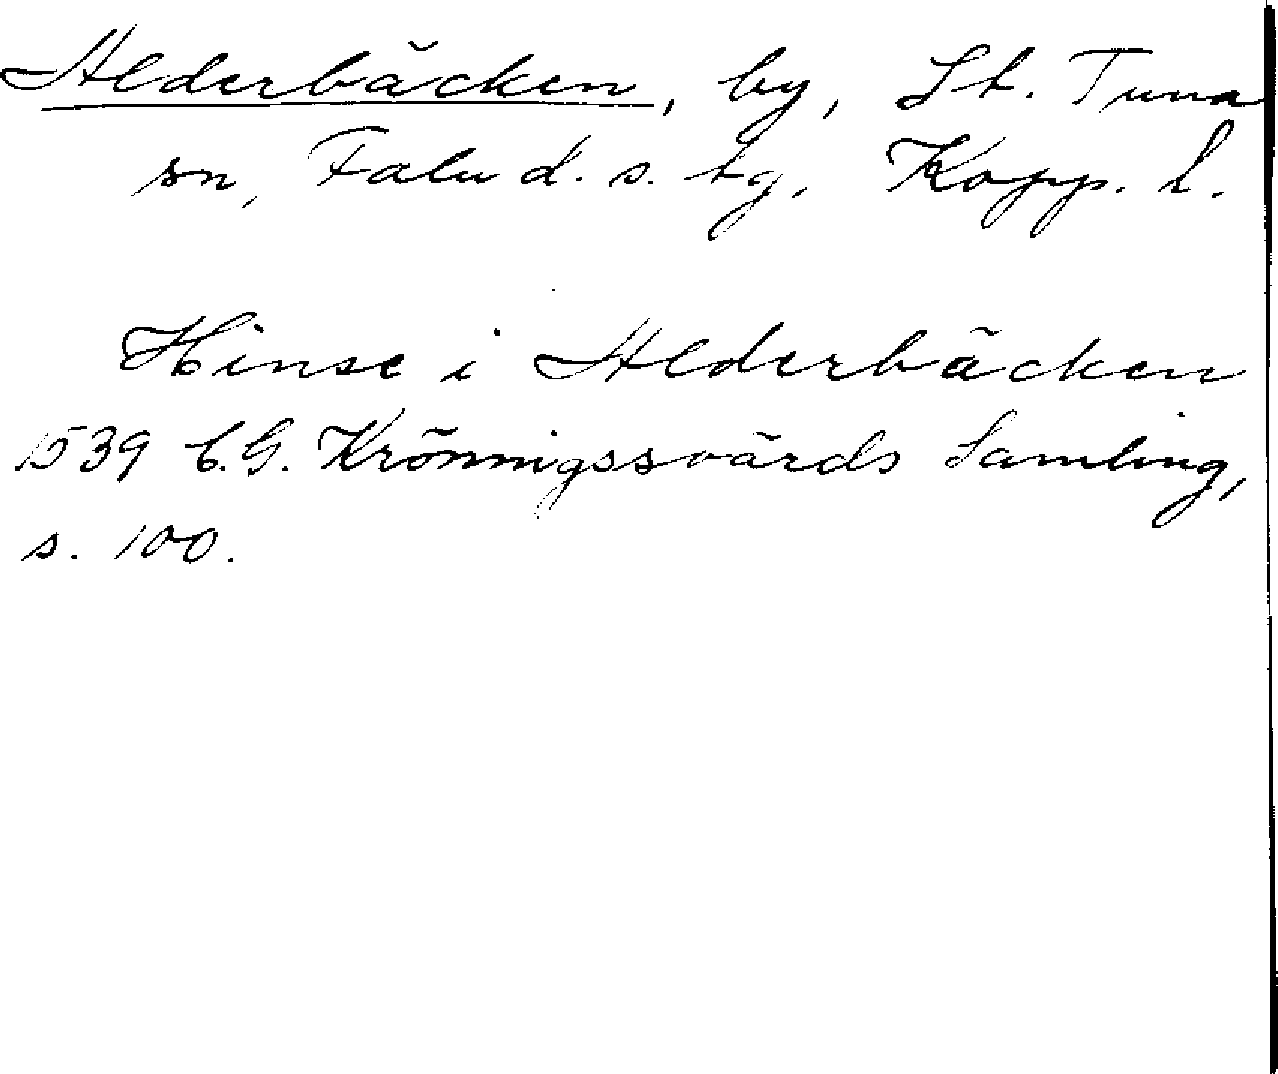 Alderbäcken, by, St. Tuna
sn, Falu d. s. tg, Kopp. l.
Hinse i Alderbäcken
1539 C.G. Krönningssvärds Samling,
s. 100.